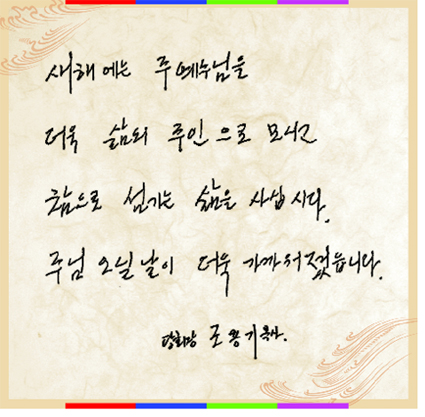 새해에는 주 예수님을
더욱 삶의 주인으로 모시고
참으로 섬기는 삶을 사십시다.
주님 오실 날이 더욱 가까워졌습니다.
당회장 조용기 목사.